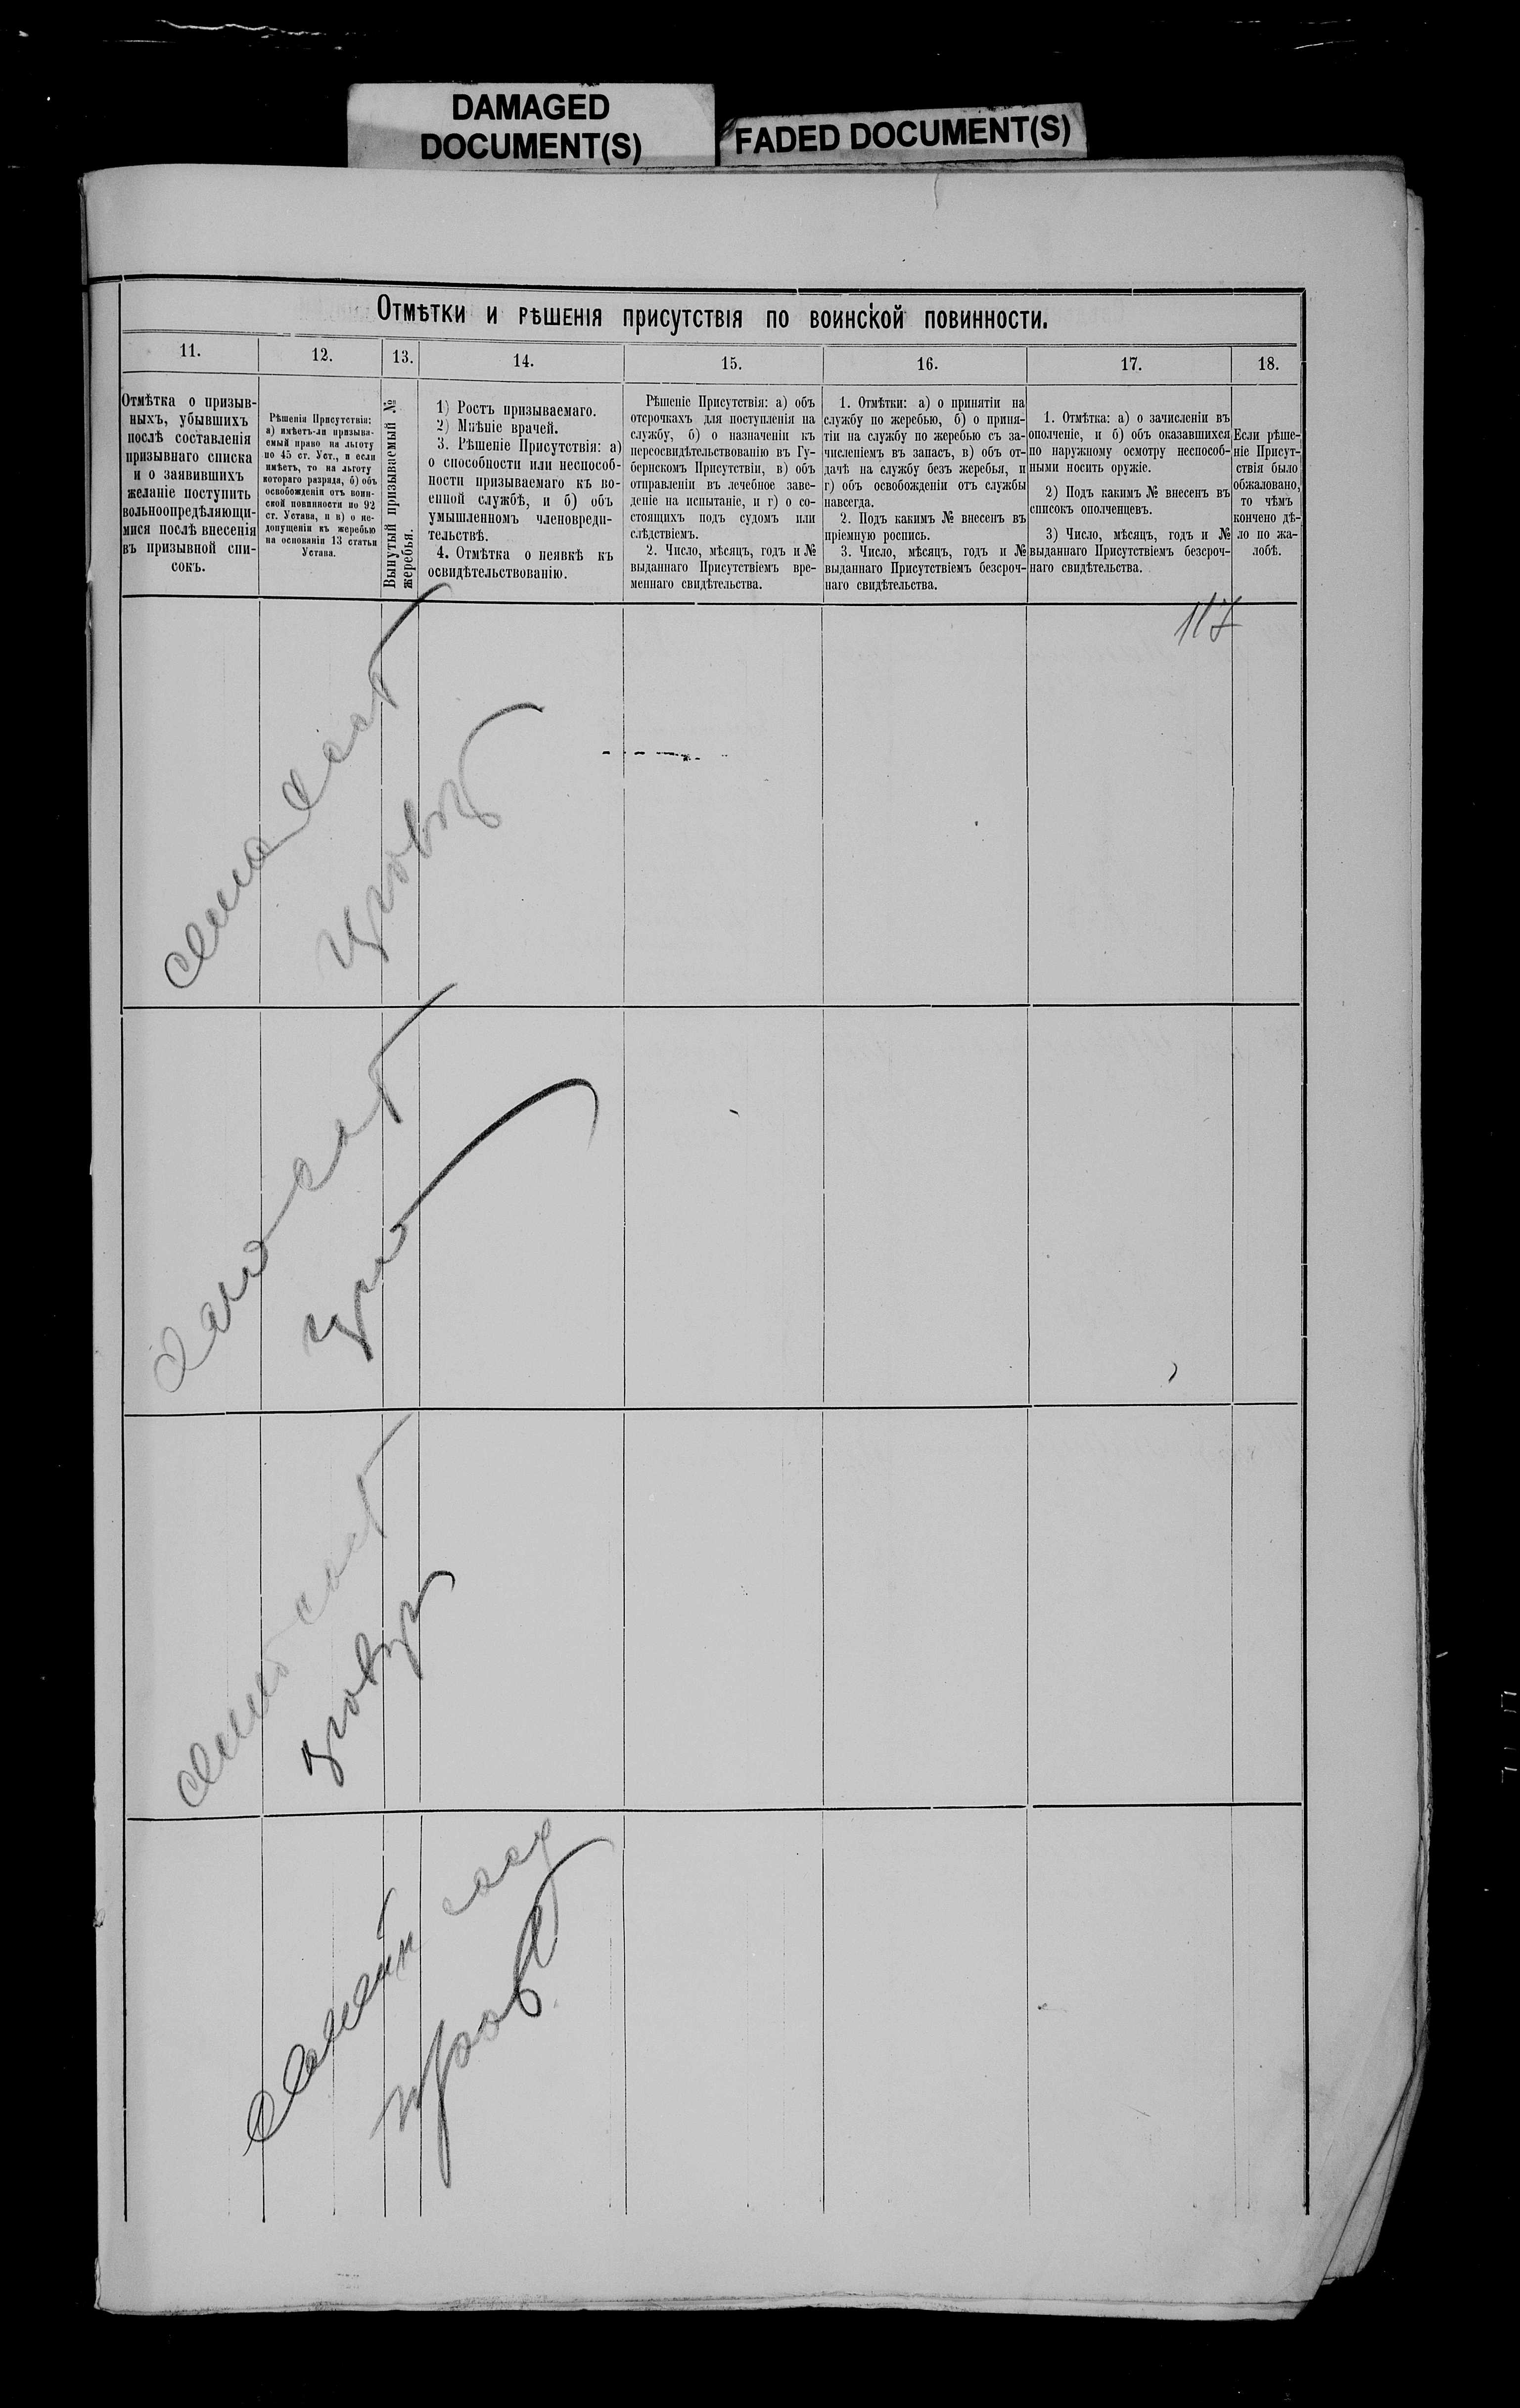 DAMAGED
DOCUMENT(S)
FADED DOCUMENT(S)
Отмѣтки и рѣшенія присутствія по воинской повинности.
11.
12.
13.
14.
15.
16.
17.
18.
Отмѣтка о призыв-
ныхъ, убывшихъ
послѣ составленія
призывнаго списка
и о заявившихъ
желаніе поступить
вольноопредѣляющи-
мися послѣ внесенія
въ призывной спи-
сокъ.
Рѣшенія Присутствія:
а) имѣетъ-ли призыва-
емый право на льготу
по 45 ст. Уст., и если
имѣетъ, то на льготу
котораго разряда, б) объ
освобожденіи отъ воин-
ской повинности по 92
ст. Устава, и в) о не-
допущеніи къ жеребью
на основаніи 13 статьи
Устава.
Вынутый призываемый №
жеребья.
1) Ростъ призываемаго.
2) Мнѣніе врачей.
3. Рѣшеніе Присутствія: а)
о способности или неспособ-
ности призываемаго къ во-
енной службѣ, и б) объ
умышленномъ членовреди-
тельствѣ.
4. Отмѣтка о неявкѣ къ
освидѣтельствованію.
Рѣшеніе Присутствія: а) объ
отсрочкахъ для поступленія на
службу, б) о назначеніи къ
переосвидѣтельствованію въ Гу-
бернскомъ Присутствіи, в) объ
отправленіи въ лечебное заве-
деніе на испытаніе, и г) о со-
стоящихъ подъ судомъ или
слѣдствіемъ.
2. Число, мѣсяцъ, годъ и №
выданнаго Присутствіемъ вре-
меннаго свидѣтельства.
1. Отмѣтки: а) о принятіи на
службу по жеребью, б) о приня-
тіи на службу по жеребью съ за-
численіемъ въ запасъ, в) объ от-
дачѣ на службу безъ жеребья, и
г) объ освобожденіи отъ службы
навсегда.
2. Подъ какимъ № внесенъ въ
пріемную роспись.
3. Число, мѣсяцъ, годъ и №
выданнаго Присутствіемъ безсроч-
наго свидѣтельства.
1. Отмѣтка: а) о зачисленіи въ
ополченіе, и б) объ оказавшихся
по наружному осмотру неспособ-
ными носить оружіе.
2) Подъ какимъ № внесенъ въ
списокъ ополченцевъ.
3) Число, мѣсяцъ, годъ и №
выданнаго Присутствіемъ безсроч-
наго свидѣтельства.
Если рѣше-
ніе Присут-
ствія было
обжаловано,
то чѣмъ
кончено дѣ-
ло по жа-
лобѣ.
117